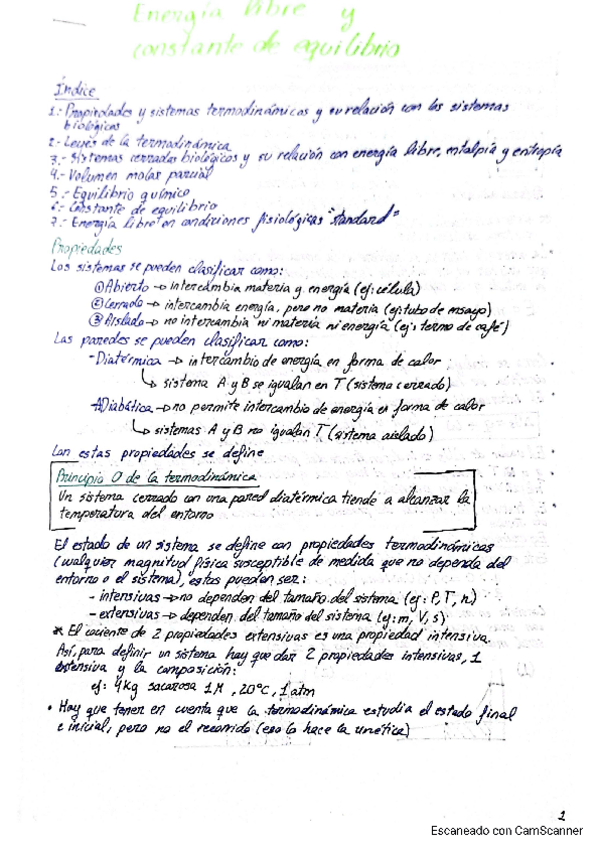 Energía libre y
constante de equilibrio
Índice
1.- Propiedades y sistemas termodinámicos y su relación con los sistemas
biológicos
2.- Leyes de la termodinámica
3.- Sistemas cerrados biológicos y su relación con energía libre, entalpía y entropía
4.- Volumen molas parcial
5.- Equilibrio químico
6.- Constante de equilibrio
7.- Energía libre en condiciones fisiológicas "standard"
Propiedades
Los sistemas se pueden clasificar como:
① Abierto → intercambia materia y energía (ej: célula)
② Cerrado → intercambia energía, pero no materia (ej: tubo de ensayo)
③ Aislado → no intercambia ni materia ni energía (ej: termo de café)
Las paredes se pueden clasificar como:
- Diatérmica → intercambio de energía en forma de calor
↳ sistema A y B se igualan en T (sistema cerrado)
- Adiabática → no permite intercambio de energía en forma de calor
↳ sistemas A y B no igualan T (sistema aislado)
Con estas propiedades se define
Principio 0 de la termodinámica
Un sistema cerrado con una pared diatérmica tiende a alcanzar la
temperatura del entorno
El estado de un sistema se define con propiedades termodinámicas
(cualquier magnitud física susceptible de medida que no dependa del
entorno o el sistema), estas pueden ser:
- intensivas → no dependen del tamaño del sistema (ej: P, T, n)
- extensivas → dependen del tamaño del sistema (ej: m, V, s)
* El cociente de 2 propiedades extensivas es una propiedad intensiva.
Así, para definir un sistema hay que dar 2 propiedades intensivas, 1
extensiva y la composición:
ej: 4Kg sacarosa 1M, 20°C, 1 atm
• Hay que tener en cuenta que la termodinámica estudia el estado final
e inicial, pero no el recorrido (eso lo hace la cinética)
1
Escaneado con CamScanner